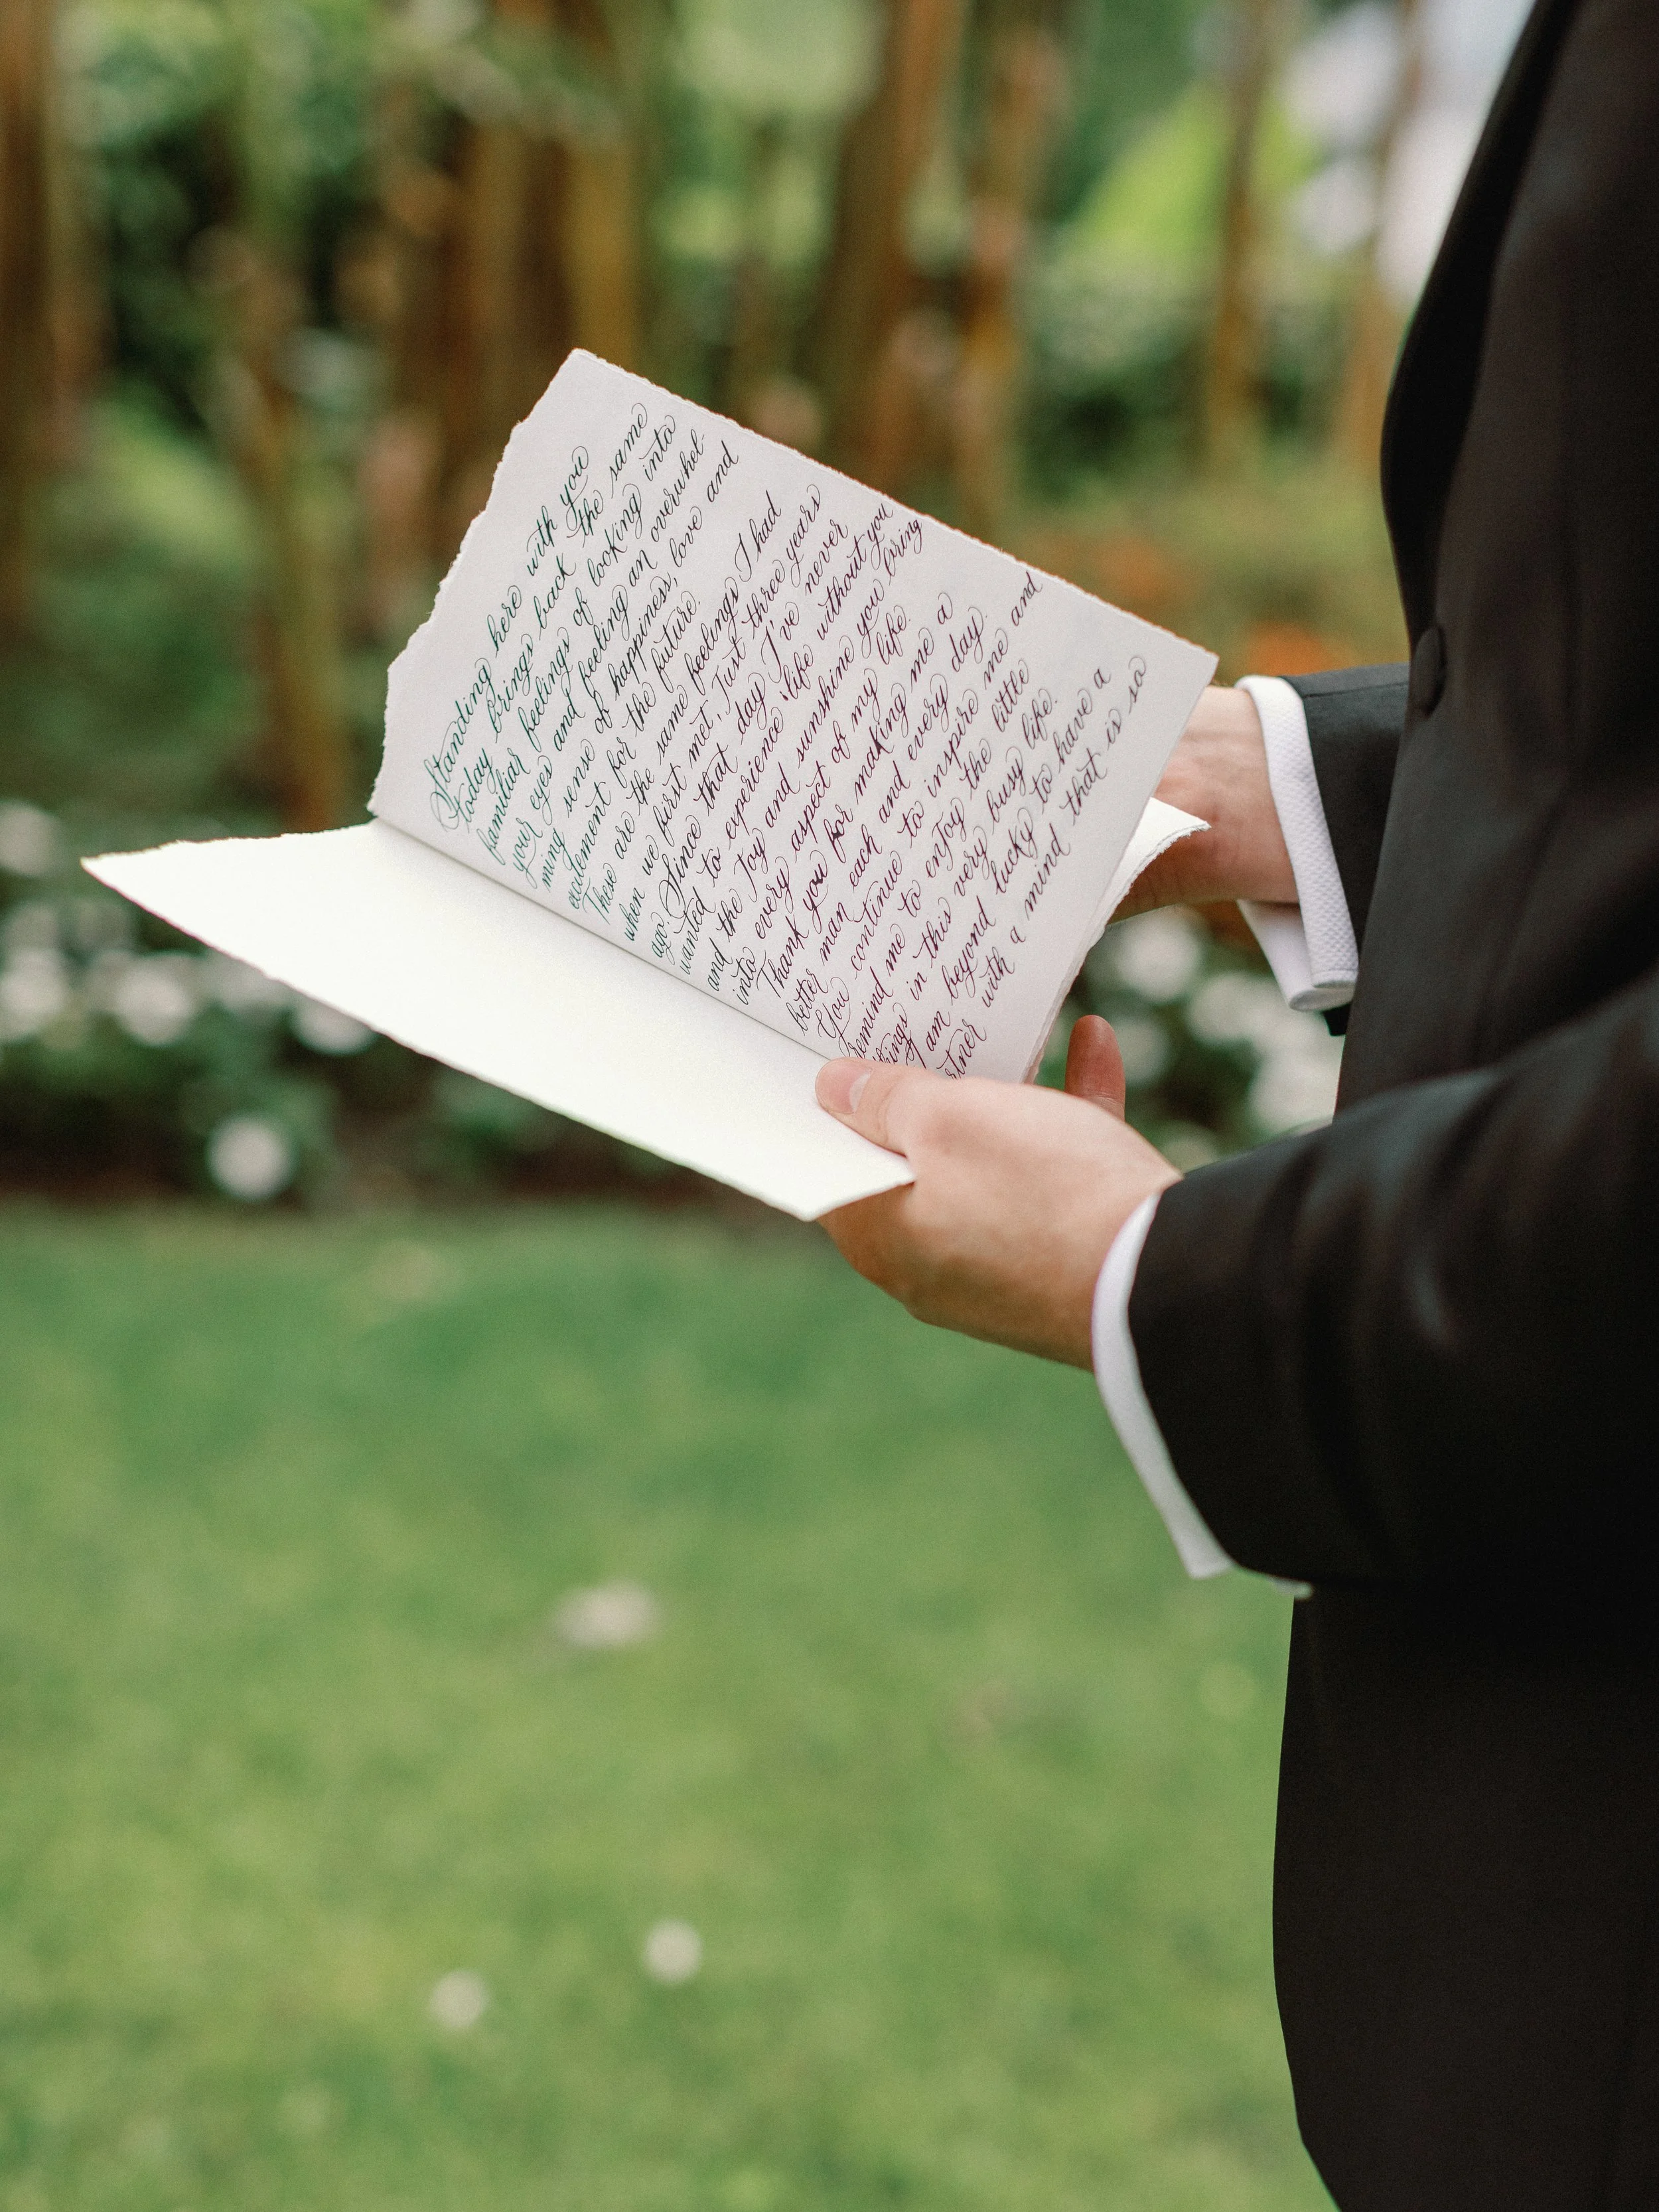 Standing here with you
today brings back the same
familiar feelings of looking into
your eyes and feeling an overwhel-
ming sense of happiness, love and
excitement for the future.
These are the same feelings I had
when we first met, Just three years
ago. Since that day I've never
wanted to experience life without you
and the Joy and sunshine you bring
into every aspect of my life.
Thank you for making me a
better man each and every day.
You continue to inspire me and
remind me to enjoy the little
things in this very busy life.
I am beyond lucky to have a
with a mind that is so